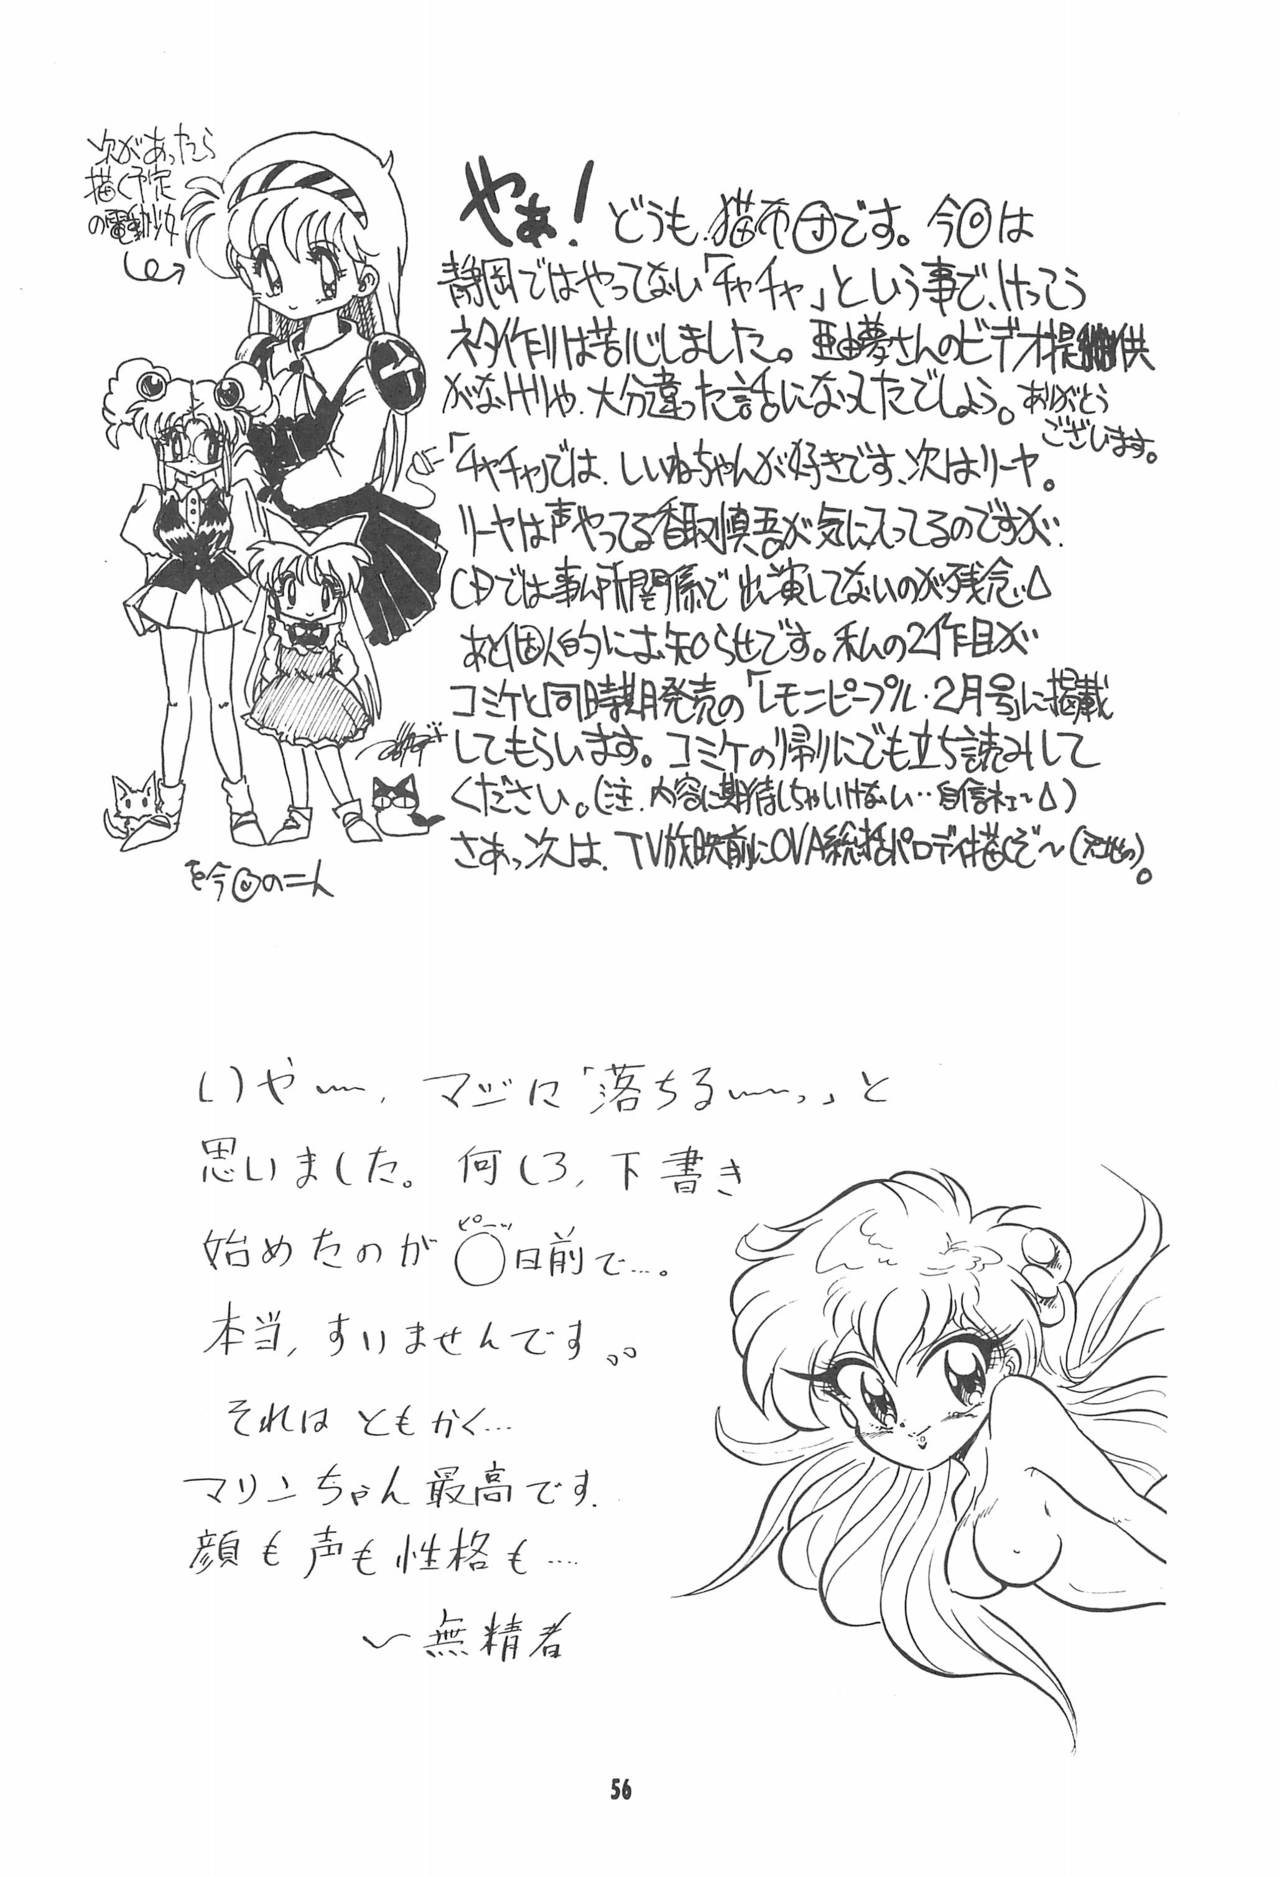 次があったら
描く予定
の電動少女
やぁ! どうも、猫布団です。今回は
静岡ではやってない「チャチャ」という事で、けっこう
ネタ作りは苦心しました。亜由夢さんのビデオ提供
がなけりゃ、大分違った話になってたでしょう。ありがとう
ございます。
「チャチャ」では、しいねちゃんが好きです、次はリーヤ。
リーヤは声やってる香取慎吾が気に入ってるのですが、
CDでは事ム所関係で出演してないのが残念
あと個人的にお知らせです。私の2作目が
コミケと同時期発売の「レモンピープル・2月号」に掲載
してもらいます。コミケの帰りにでも立ち読みして
ください。(注、内容に期待しちゃいけない‥自信ネェ~)
さあっ次は、TV放映前にOVA総括パロディ描くぞ~
を今回のニン
いや〜、マジに「落ちる〜っ」と
思いました。何しろ、下書き
始めたのが〇日前で…。
ピーッ
本当、すいませんです。。
それは ともかく…
マリンちゃん最高です.
顔も声も性格も‥‥
~無精者
56